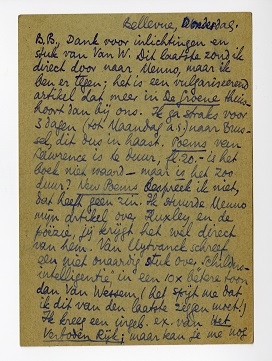 Bellevue, Donderdag.
B.B., Dank voor inlichtingen en
stuk van Van W. Dit laatste zond ik
direct door naar Menno, maar ik
ben er tegen; het is een vulgariseerend
artikel dat meer in De Groene thuis-
hoort dan bij ons. Ik ga straks voor
3 dagen (tot Maandag a.s.) naar Brus-
sel, dit dus in haast. Poems van
Lawrence is te duur, fl. 20,- is het
boek niet waard – maar is het zoo
duur? New Poems bespreek ik niet,
dat heeft geen zin. Ik stuurde Menno
mijn artikel over Huxley en de
poëzie, jij krijgt het wel direct
van hem. Van Uytvanck schreef
een niet onaardig stuk over Schilders-
intelligentie in een 10x betere toon
dan Van Wessem, (het spijt me dat
ik dit van den laatste zeggen moet!)
Ik kreeg een ingeb. ex. van Het
Verboden Rijk; maar kan je me nog